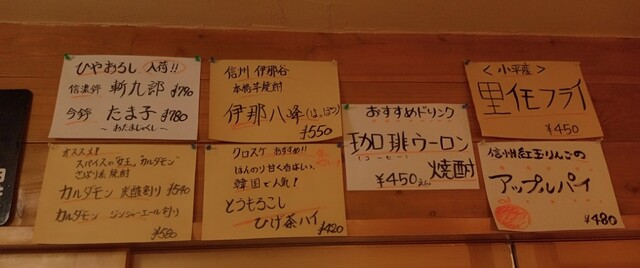 ひやおろし 入荷!!
信濃鈴 斬九郎 ¥790
今錦 たま子 ¥780
〜おたまじゃくし〜
信州 伊那谷
本格芋焼酎
伊那八峰(はっぽう)
¥550
おすすめドリンク
珈琲ウーロン
(コーヒー)
焼酎
¥450
<小平産>
里イモフライ
¥450
オススメ!
スパイスの女王。カルダモン
さっぱり系焼酎
カルダモン 炭酸割り ¥540
カルダモン ジンジャーエール割り
¥580
クロスケ おすすめ!!
ほんのり甘く香ばしい、
韓国で人気!
とうもろこし
ひげ茶ハイ
¥420
信州紅玉りんごの
アップルパイ
¥480